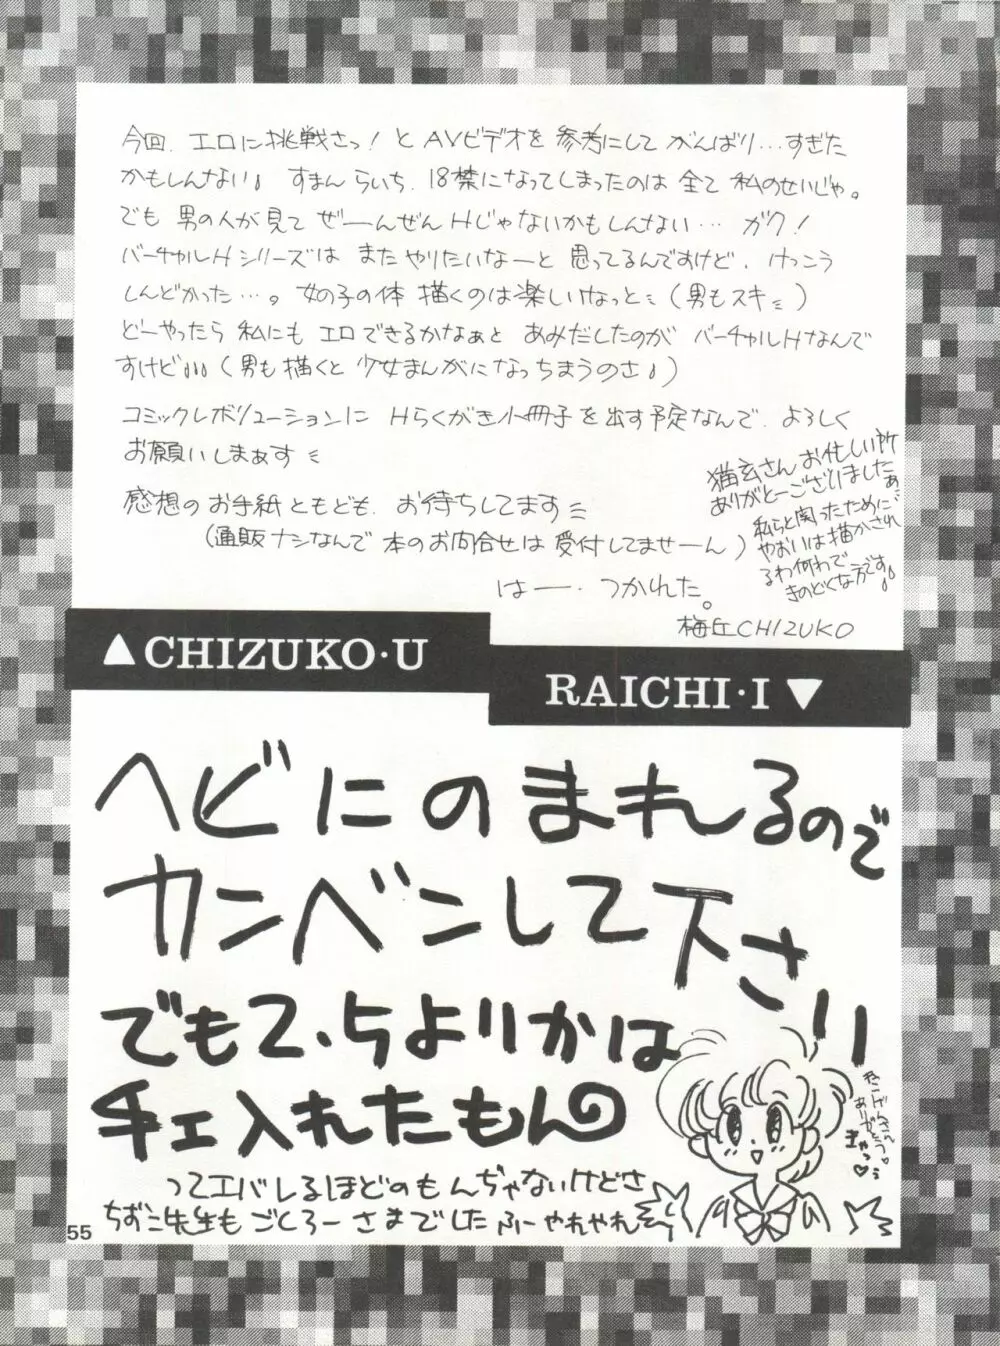 今回、エロに挑戦さっ!とAVビデオを参考にしてがんばり…すぎた
かもしんない♪ すまんらいち、18禁になってしまったのは全て私のせいじゃ。
でも男の人が見てぜーんぜんHじゃないかもしんない… ガク!
バーチャルHシリーズはまたやりたいなーと思ってるんですけど、けっこう
しんどかった…。女の子の体描くのは楽しいなっと(男もスキ)
どーやったら私にもエロできるかなぁとあみだしたのがバーチャルHなんで
すけど♪♪♪(男も描くと少女まんがになっちまうのさ♪)
コミックレボリューションにHらくがき小冊子を出す予定なんで、よろしく
お願いしまぁす
感想のお手紙ともども、お待ちしてます
(通販ナシなんで本のお問合せは受付してませーん)
はー・つかれた。
猫玄さんお忙しい所
ありがとーございましたぁ…
私らと関ったために
やおいは描かされ
るわ何わで
きのどくな方です♪
梅丘CHIZUKO
▲CHIZUKO·U
RAICHI·I▼
ヘビにのまれるので
カンベンして下さり
でも2.5よりかは
チェ入れたもん
ってエバレるほどのもんぢゃないけどさ
ちずこ先生もごくろーさまでしたふーやれやれ
ねこげんさん
ありがとう♡
きゃっ♡
55